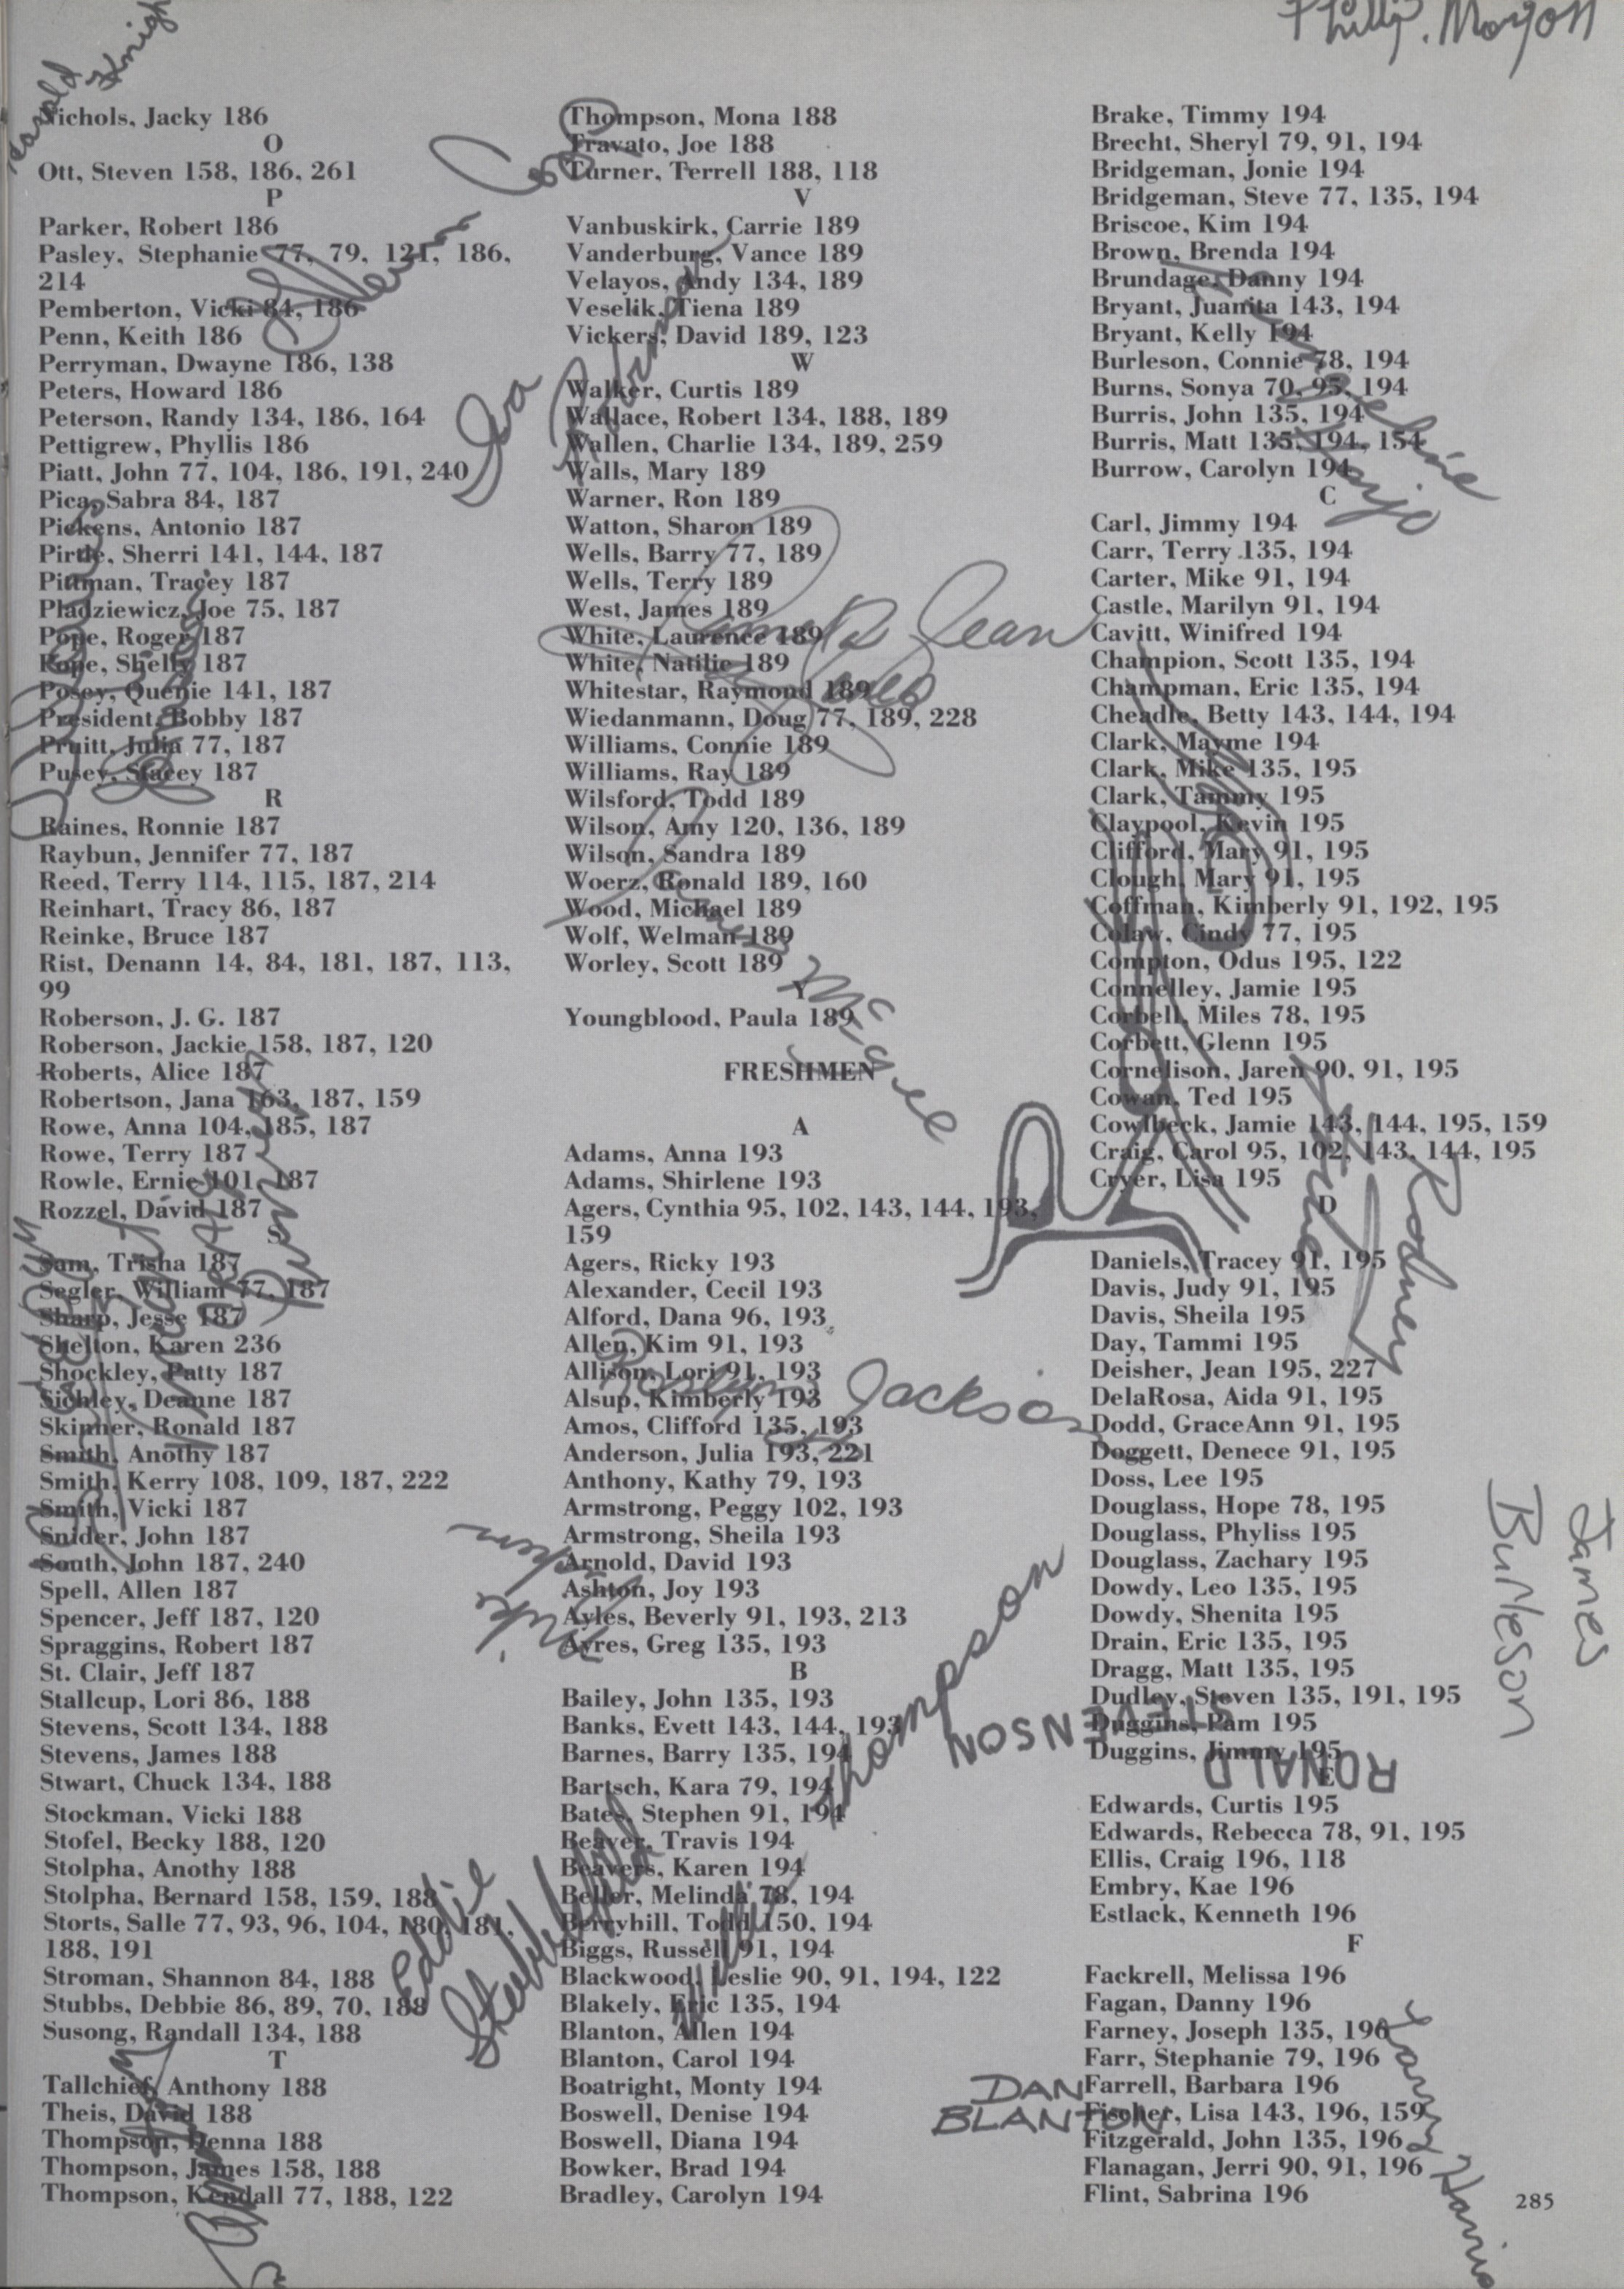 Nichols, Jacky 186
O
Ott, Steven 158, 186, 261
P
Parker, Robert 186
Pasley, Stephanie 77, 79, 121, 186,
214
Pemberton, Vicki 84, 186
Penn, Keith 186
Perryman, Dwayne 186, 138
Peters, Howard 186
Peterson, Randy 134, 186, 164
Pettigrew, Phyllis 186
Piatt, John 77, 104, 186, 191, 240
Pica, Sabra 84, 187
Pickens, Antonio 187
Pirtle, Sherri 141, 144, 187
Pittman, Tracey 187
Pladziewicz, Joe 75, 187
Pope, Roger 187
Pope, Shelly 187
Posey, Quenie 141, 187
President, Bobby 187
Pruitt, Julia 77, 187
Pusey, Stacey 187
R
Raines, Ronnie 187
Raybun, Jennifer 77, 187
Reed, Terry 114, 115, 187, 214
Reinhart, Tracy 86, 187
Reinke, Bruce 187
Rist, Denann 14, 84, 181, 187, 113,
99
Roberson, J. G. 187
Roberson, Jackie 158, 187, 120
Roberts, Alice 187
Robertson, Jana 163, 187, 159
Rowe, Anna 104, 185, 187
Rowe, Terry 187
Rowle, Ernie 101, 187
Rozzel, David 187
S
Sam, Trisha 187
Segler, William 77, 187
Sharp, Jesse 187
Shelton, Karen 236
Shockley, Patty 187
Sichley, Deanne 187
Skinner, Ronald 187
Smith, Anothy 187
Smith, Kerry 108, 109, 187, 222
Smith, Vicki 187
Snider, John 187
South, John 187, 240
Spell, Allen 187
Spencer, Jeff 187, 120
Spraggins, Robert 187
St. Clair, Jeff 187
Stallcup, Lori 86, 188
Stevens, Scott 134, 188
Stevens, James 188
Stwart, Chuck 134, 188
Stockman, Vicki 188
Stofel, Becky 188, 120
Stolpha, Anothy 188
Stolpha, Bernard 158, 159, 188
Storts, Salle 77, 93, 96, 104, 180, 181,
188, 191
Stroman, Shannon 84, 188
Stubbs, Debbie 86, 89, 70, 188
Susong, Randall 134, 188
T
Tallchief, Anthony 188
Theis, David 188
Thompson, Denna 188
Thompson, James 158, 188
Thompson, Kendall 77, 188, 122
Thompson, Mona 188
Travato, Joe 188
Turner, Terrell 188, 118
V
Vanbuskirk, Carrie 189
Vanderburg, Vance 189
Velayos, Andy 134, 189
Veselik, Tiena 189
Vickers, David 189, 123
W
Walker, Curtis 189
Wallace, Robert 134, 188, 189
Wallen, Charlie 134, 189, 259
Walls, Mary 189
Warner, Ron 189
Watton, Sharon 189
Wells, Barry 77, 189
Wells, Terry 189
West, James 189
White, Laurence 189
White, Natilie 189
Whitestar, Raymond 189
Wiedanmann, Doug 77, 189, 228
Williams, Connie 189
Williams, Ray 189
Wilsford, Todd 189
Wilson, Amy 120, 136, 189
Wilson, Sandra 189
Woerz, Ronald 189, 160
Wood, Michael 189
Wolf, Welman 189
Worley, Scott 189
Y
Youngblood, Paula 189
FRESHMEN
A
Adams, Anna 193
Adams, Shirlene 193
Agers, Cynthia 95, 102, 143, 144, 193,
159
Agers, Ricky 193
Alexander, Cecil 193
Alford, Dana 96, 193
Allen, Kim 91, 193
Allison, Lori 91, 193
Alsup, Kimberly 193
Amos, Clifford 135, 193
Anderson, Julia 193, 221
Anthony, Kathy 79, 193
Armstrong, Peggy 102, 193
Armstrong, Sheila 193
Arnold, David 193
Ashton, Joy 193
Ayles, Beverly 91, 193, 213
Ayres, Greg 135, 193
B
Bailey, John 135, 193
Banks, Evett 143, 144, 193
Barnes, Barry 135, 194
Bartsch, Kara 79, 194
Bates, Stephen 91, 194
Beaver, Travis 194
Beavers, Karen 194
Beller, Melinda 78, 194
Berryhill, Todd 150, 194
Biggs, Russell 91, 194
Blackwood, Leslie 90, 91, 194, 122
Blakely, Eric 135, 194
Blanton, Allen 194
Blanton, Carol 194
Boatright, Monty 194
Boswell, Denise 194
Boswell, Diana 194
Bowker, Brad 194
Bradley, Carolyn 194
Brake, Timmy 194
Brecht, Sheryl 79, 91, 194
Bridgeman, Jonie 194
Bridgeman, Steve 77, 135, 194
Briscoe, Kim 194
Brown, Brenda 194
Brundage, Danny 194
Bryant, Juanita 143, 194
Bryant, Kelly 194
Burleson, Connie 78, 194
Burns, Sonya 70, 95, 194
Burris, John 135, 194
Burris, Matt 135, 194, 154
Burrow, Carolyn 194
C
Carl, Jimmy 194
Carr, Terry 135, 194
Carter, Mike 91, 194
Castle, Marilyn 91, 194
Cavitt, Winifred 194
Champion, Scott 135, 194
Champman, Eric 135, 194
Cheadle, Betty 143, 144, 194
Clark, Mayme 194
Clark, Mike 135, 195
Clark, Tammy 195
Claypool, Kevin 195
Clifford, Mary 91, 195
Clough, Mary 91, 195
Coffman, Kimberly 91, 192, 195
Colaw, Cindy 77, 195
Compton, Odus 195, 122
Connelley, Jamie 195
Corbell, Miles 78, 195
Corbett, Glenn 195
Cornelison, Jaren 90, 91, 195
Cowan, Ted 195
Cowlbeck, Jamie 143, 144, 195, 159
Craig, Carol 95, 102, 143, 144, 195
Cryer, Lisa 195
D
Daniels, Tracey 91, 195
Davis, Judy 91, 195
Davis, Sheila 195
Day, Tammi 195
Deisher, Jean 195, 227
DelaRosa, Aida 91, 195
Dodd, GraceAnn 91, 195
Doggett, Denece 91, 195
Doss, Lee 195
Douglass, Hope 78, 195
Douglass, Phyliss 195
Douglass, Zachary 195
Dowdy, Leo 135, 195
Dowdy, Shenita 195
Drain, Eric 135, 195
Dragg, Matt 135, 195
Dudley, Steven 135, 191, 195
Duggins, Pam 195
Duggins, Jimmy 195
E
Edwards, Curtis 195
Edwards, Rebecca 78, 91, 195
Ellis, Craig 196, 118
Embry, Kae 196
Estlack, Kenneth 196
F
Fackrell, Melissa 196
Fagan, Danny 196
Farney, Joseph 135, 196
Farr, Stephanie 79, 196
Farrell, Barbara 196
Fischer, Lisa 143, 196, 159
Fitzgerald, John 135, 196
Flanagan, Jerri 90, 91, 196
Flint, Sabrina 196
285
Knigh
Robinson
Jean
McGee
Roslyn Jackson
Rodney
James
Burleson
Thompson
Willie
RONALD
STEVENSON
Eddie
Stubblefield
DAN
BLANTON
Larry Harris